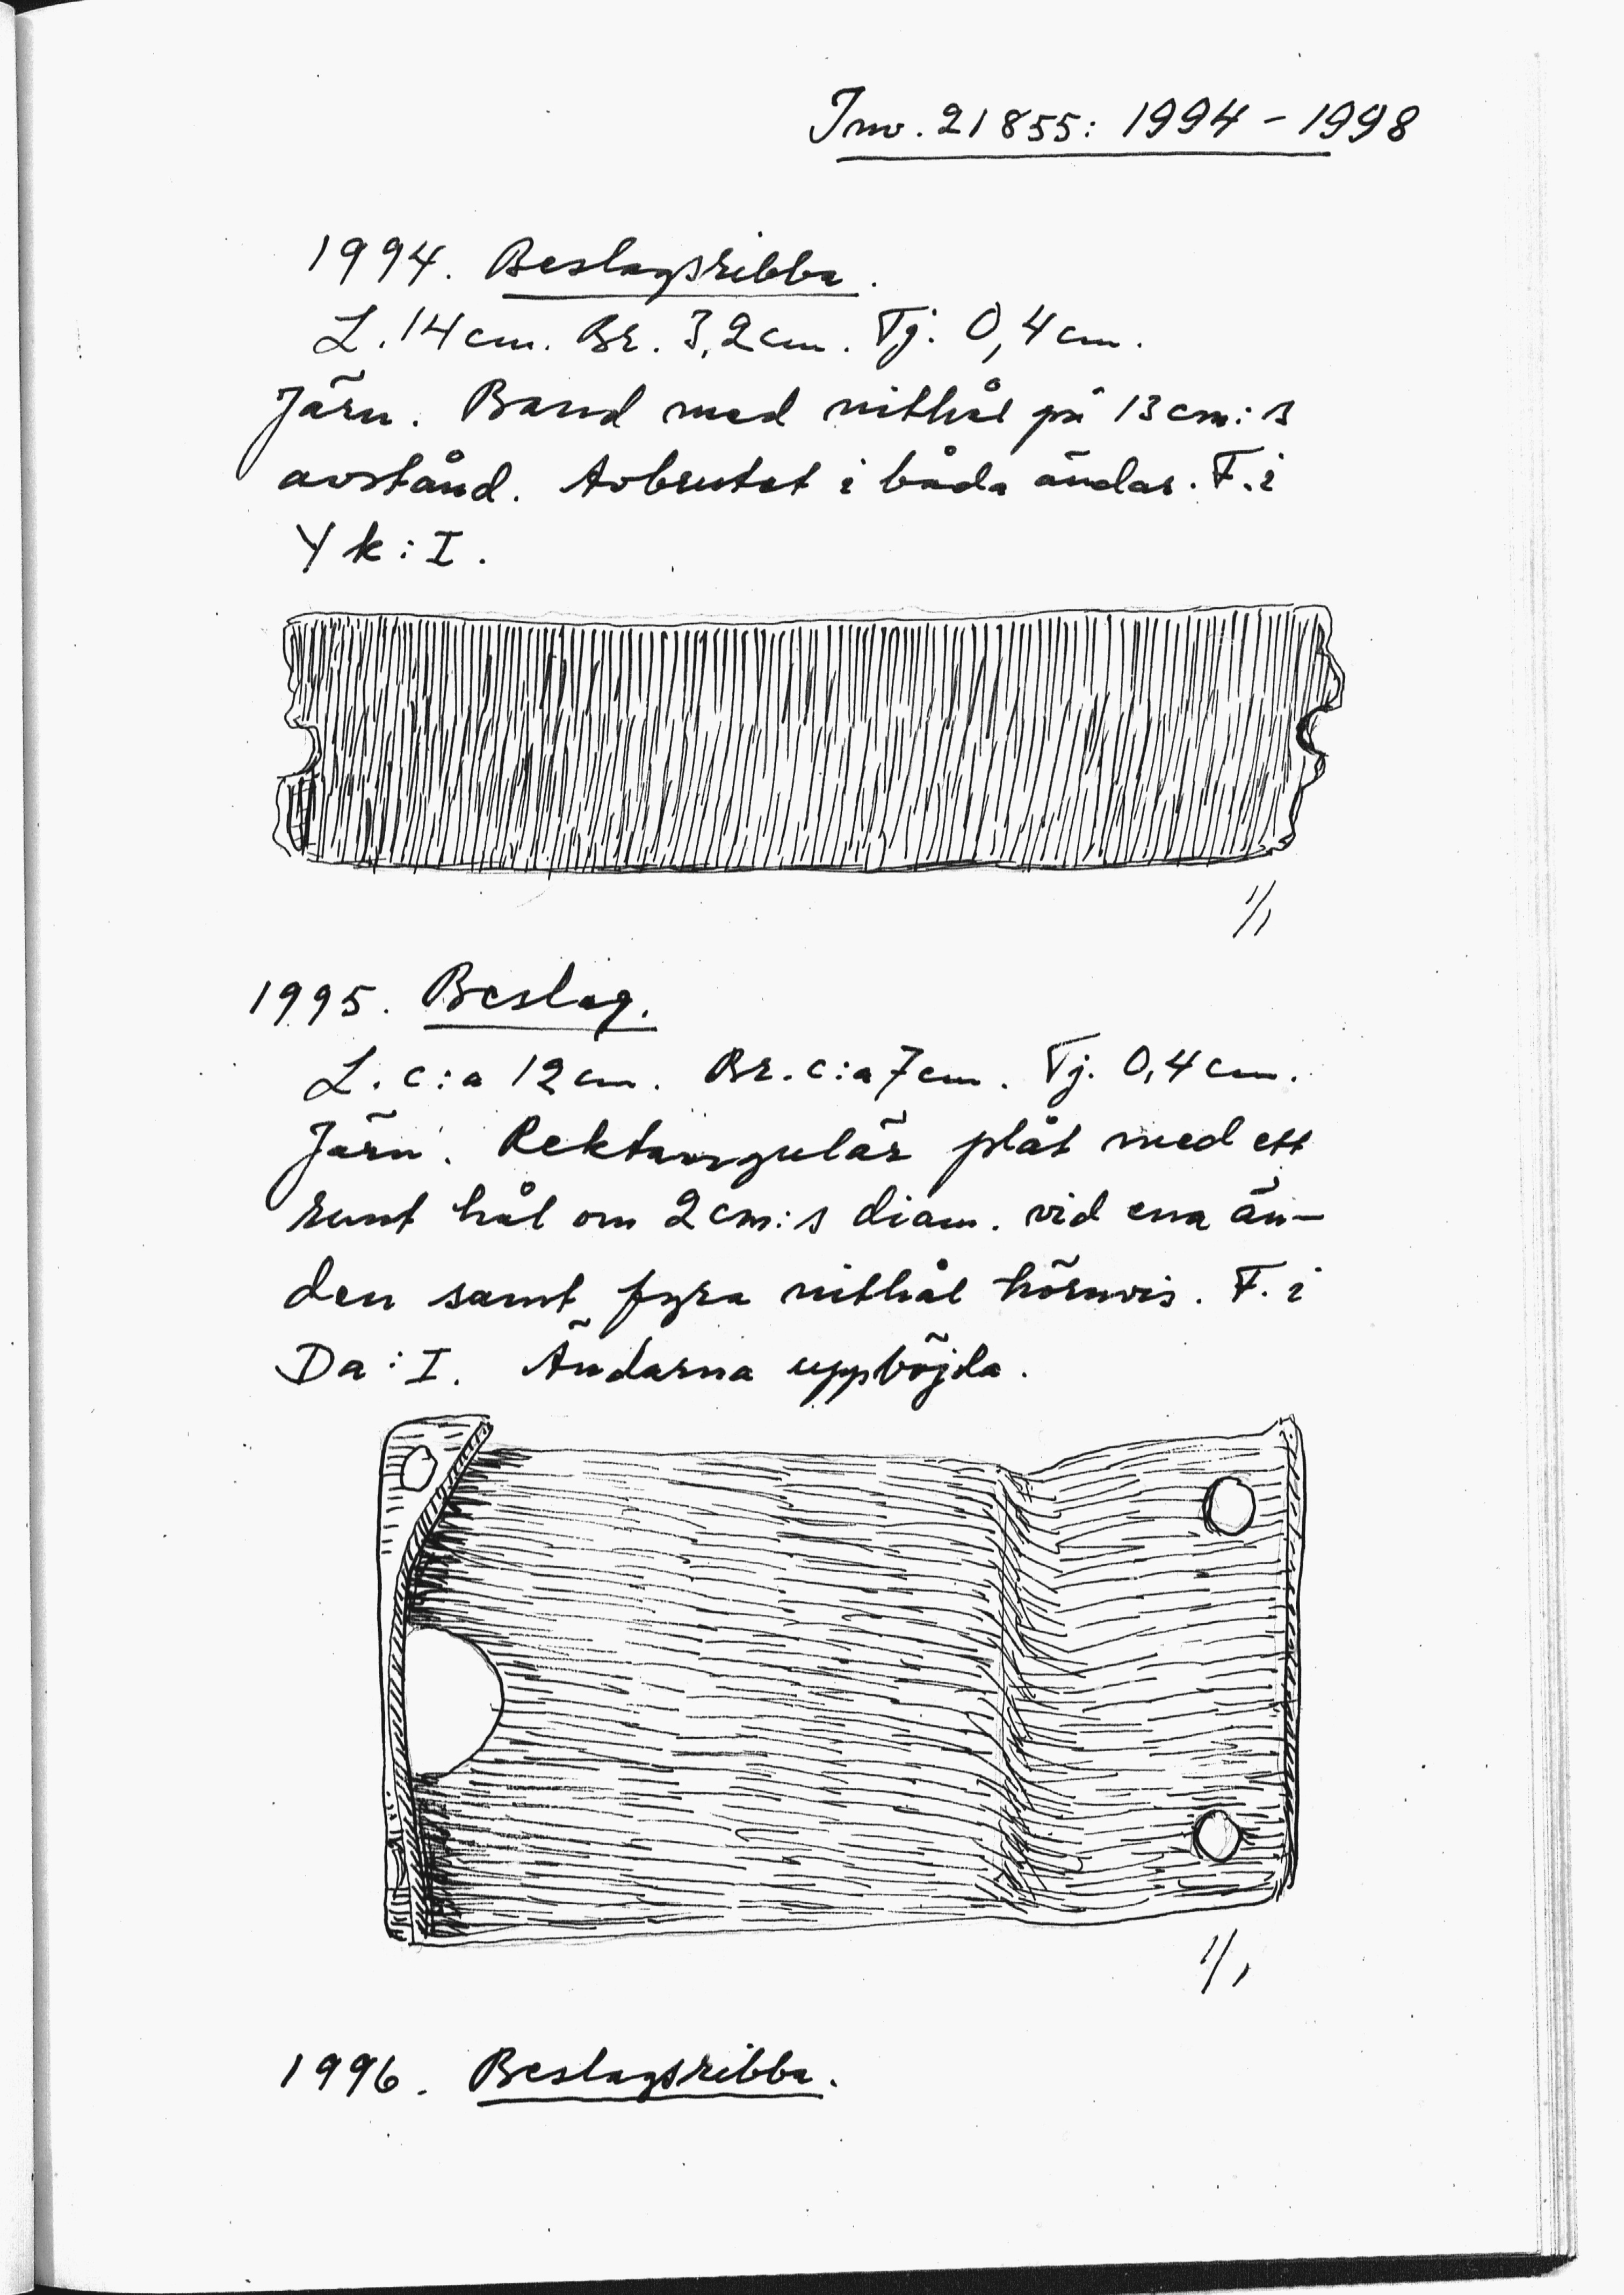 Inv. 21855: 1994 - 1998
1994. Beslagsribba.
L. 14 cm. Br. 3,2 cm. Tj. 0,4 cm.
Järn. Band med nithål på 13 cm:s
avstånd. Avbrutet i båda ändar. F. i
Yk: I.
1/1
1995. Beslag.
L. c:a 12 cm. Br. c:a 7 cm. Tj. 0,4 cm.
Järn. Rektangulär plåt med ett
runt hål om 2 cm:s diam. vid ena än-
den samt fyra nithål hörnvis. F. i
Da: I. Ändarna uppböjda.
1/1
1996. Beslagsribba.